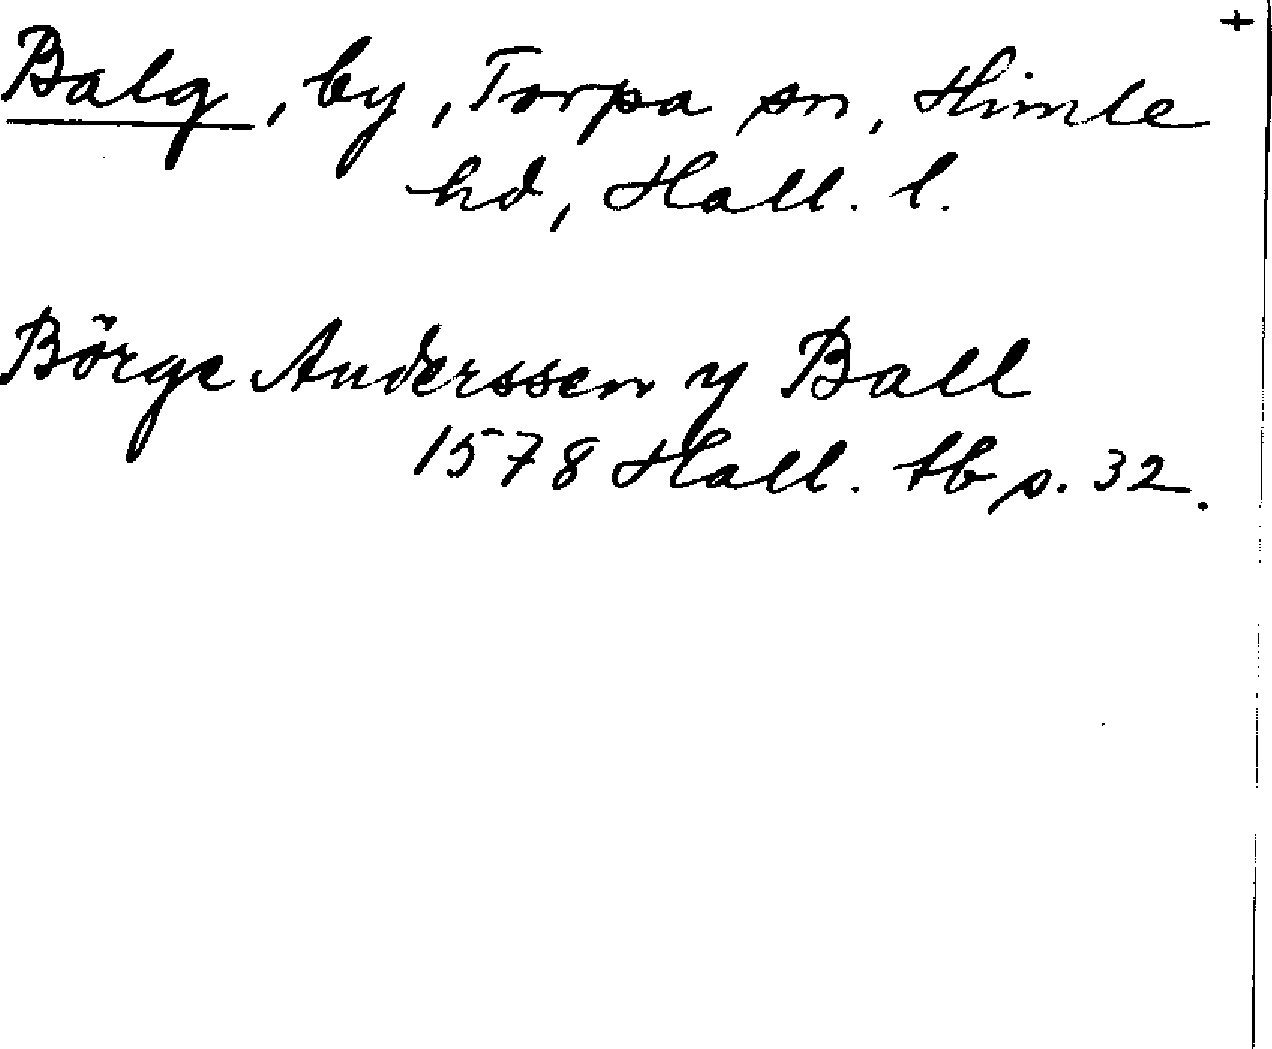 +
Balg, by, Torpa sn, Himle
hd, Hall. l.
Börge Anderssen y Ball
1578 Hall. tb s. 32.